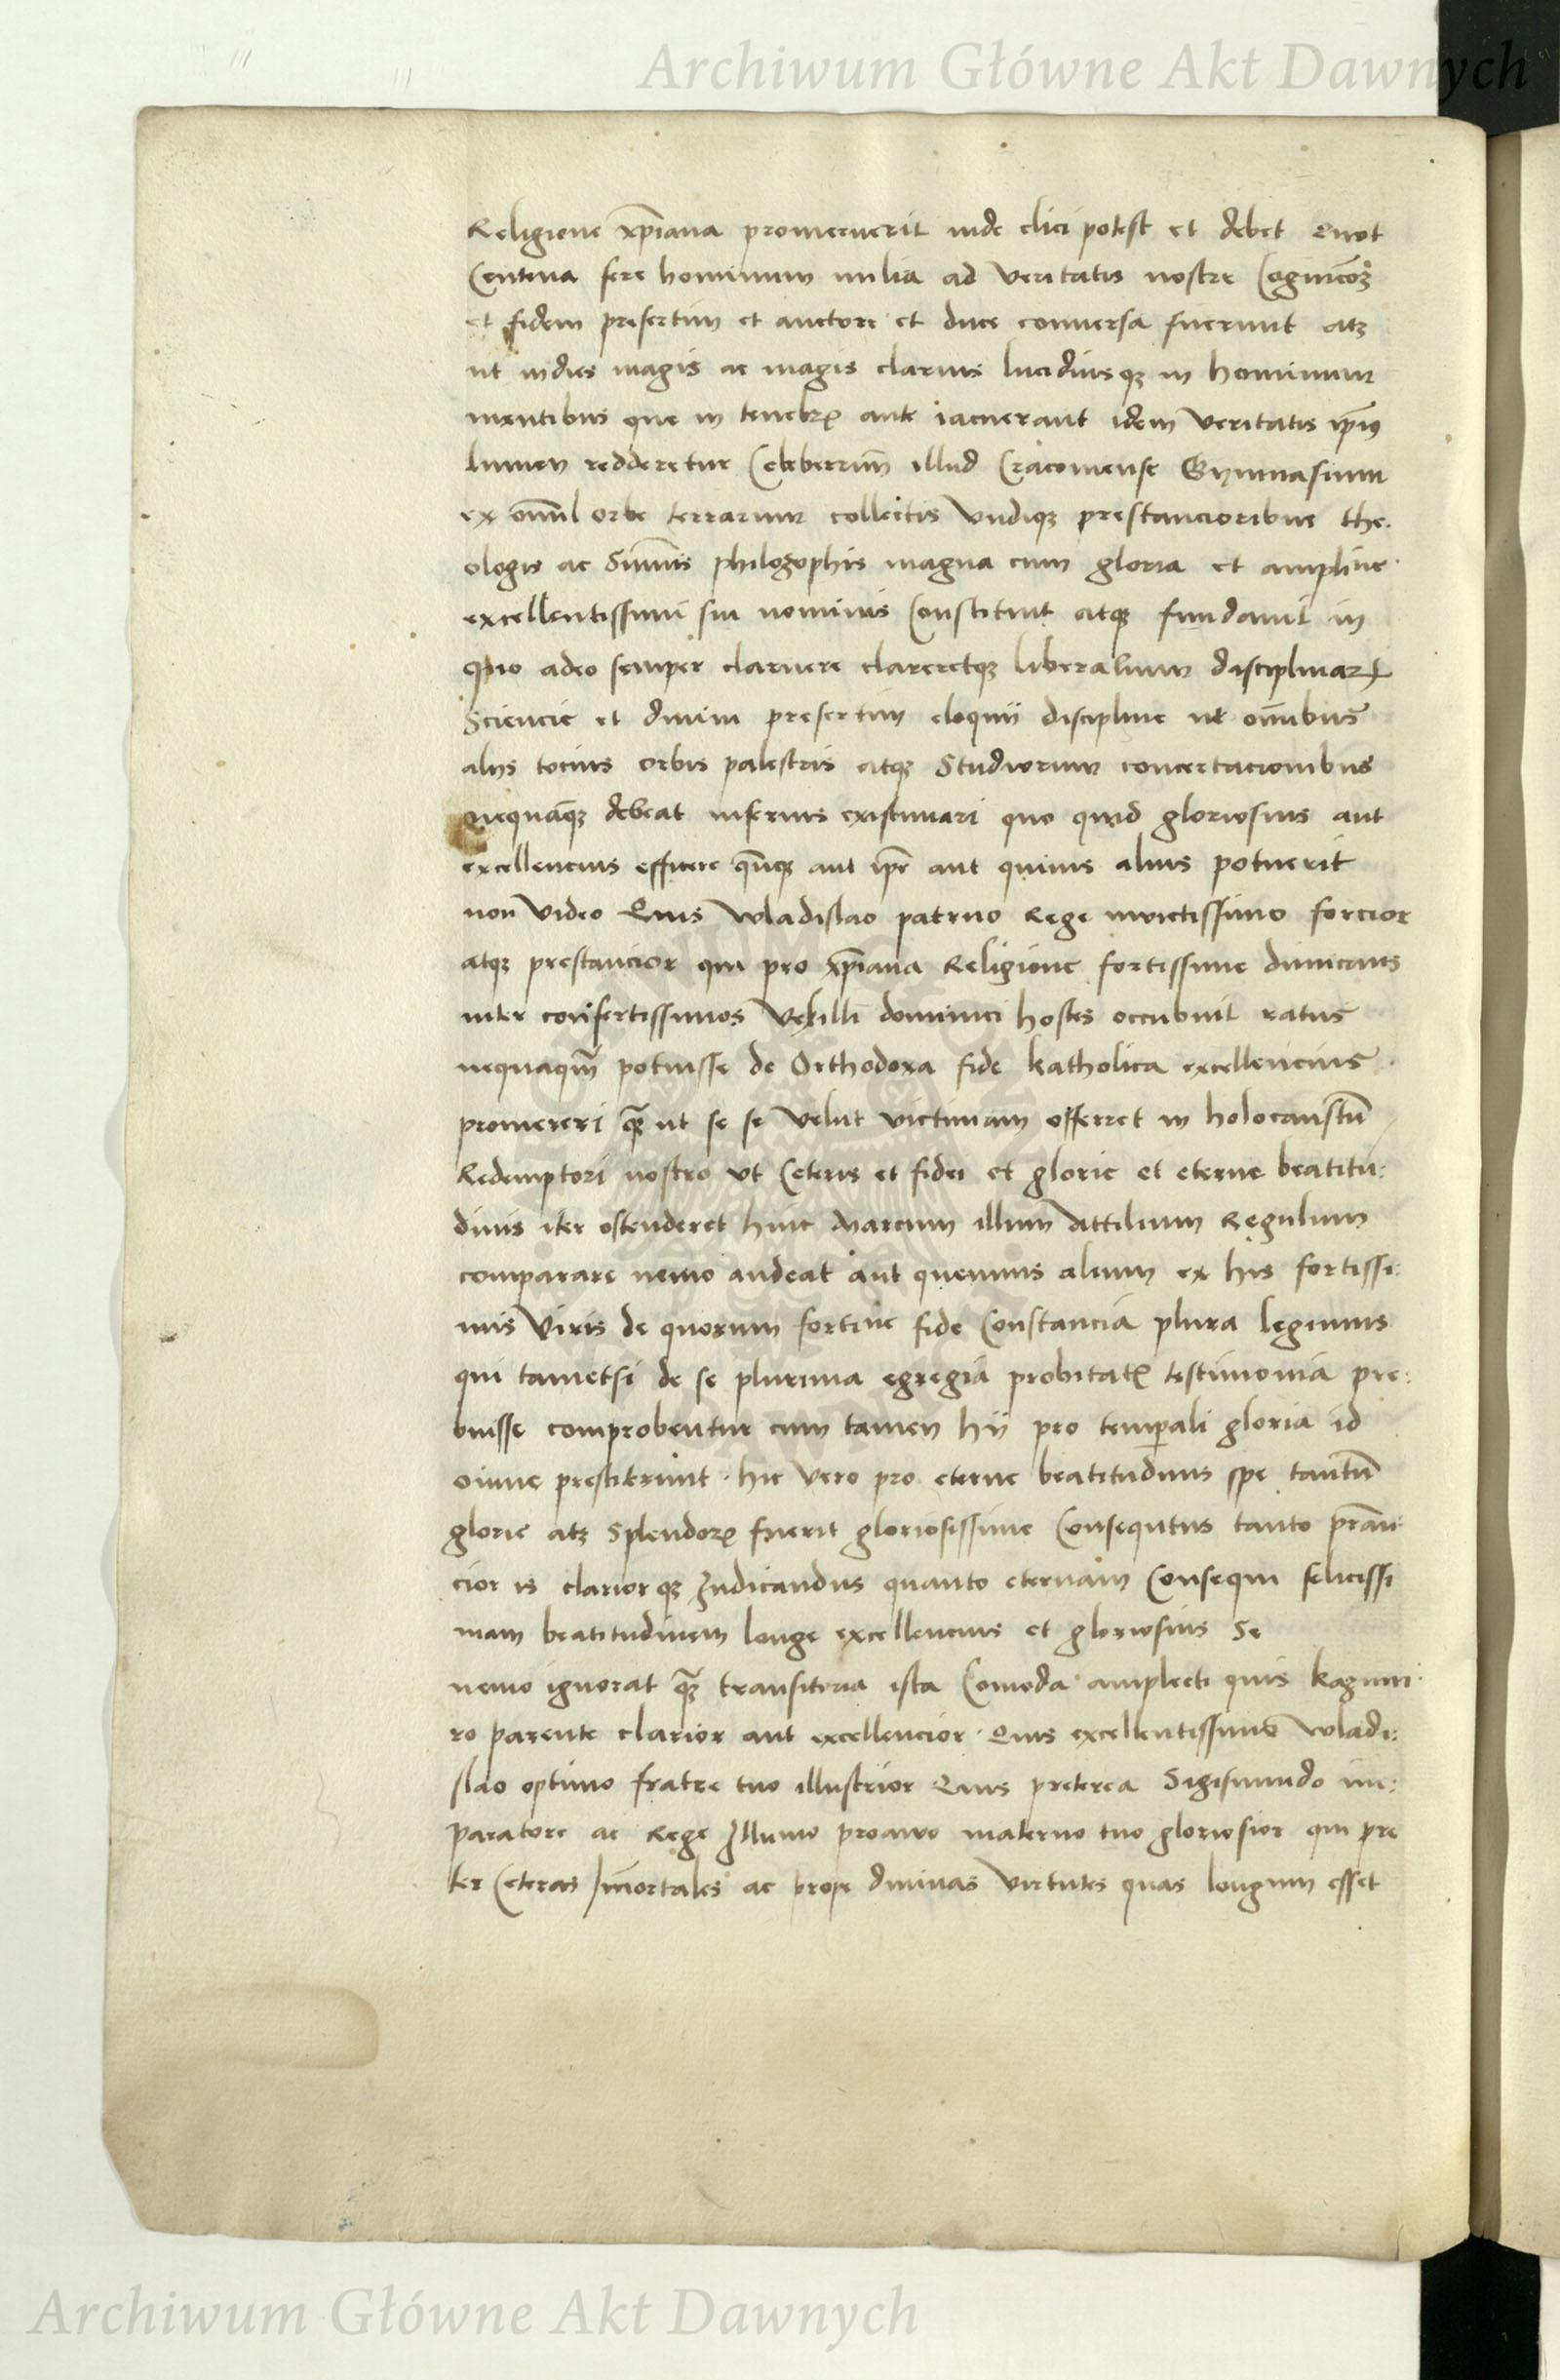 Archiwum Główne Akt Dawnych
Religione xp̄iana promeruerit inde elici potest et debet Quot
Centena fere hominum milia ad veritatis nostre Cognic̄oꝫ
et fidem presertim et auctore et duce conuersa fuerunt atꝫ
ut indies magis ac magis clarius lucidiusqꝫ in hominum
mentibus que in tenebrꝭ ante iacuerant idem veritatis ip̄ius
lumen redderetur Celeberrim̄ illud Cracouiense Gymnasium
ex om̄i orbe terrarum collectis vndiqꝫ prestancioribus the.
ologis ac Sum̄is philozophis magna cum gloria et amplitue
excellentissimi sui nominis Constituit atqꝫ fundauit in
quo adeo semper claruere clareretqꝫ liberalium disciplinaꝝ
Sciencie et diuini presertim eloquii discipline ut om̄ibus
alijs tocius orbis palestris atqꝫ Studiorum concertacionibus
nequāqꝫ debeat inferius existimari quo quid gloriosius aut
excellencius efficere qūqꝫ aut ip̄e aut quiuis alius potuerit
non video Quis wladislao patruo Rege inuictissimo forcior
atqꝫ prestancior qui pro xp̄iana Religione fortissime dimicans
inter confertissimos vexilli dominici hostes occubuit ratus
nequaqm̄ potuisse de Orthodoxa fide katholica excellencius
promereri qꝫ̄ ut se se velut victimam offerret in holocaustū
Redemptori nostro vt Ceteris et fidei et glorie et eterne beatitu:
dinis iter ostenderet huic Marcum illum Attilium Regulum
comparare nemo audeat aut quemuis alium ex his fortissi:
mis viris de quorum fortiue fide Constancia plura legimus
qui tametsi de se plurima egregia probitatꝭ testimonia pre:
buisse comprobentur cum tamen hij pro temporali gloria id
oīmne prestiterunt . hic vero pro eterne beatitudinis spe tantū
glorie atꝫ Splendorꝭ fuerit gloriosissime Consequtus tanto prān
cior is clariorqꝫ Iudicandus quanto eternam Consequi felicissi
mam beatitudinem longe excellencius et gloriosius Se
nemo ignorat qꝫ̄ transitoria ista Comoda amplecti quis kazimi
ro parente clarior aut excellencior . Quis excellentissimo wladi:
slao optimo fratre tuo illustrior Quis preterea Sigismundo im:
paratore ac Rege Illumo proauo materno tuo gloriosior qui pre
ter Ceteras Im̄ortales ac prope diuinas virtutes quas longum esset
Archiwum Główne Akt Dawnych